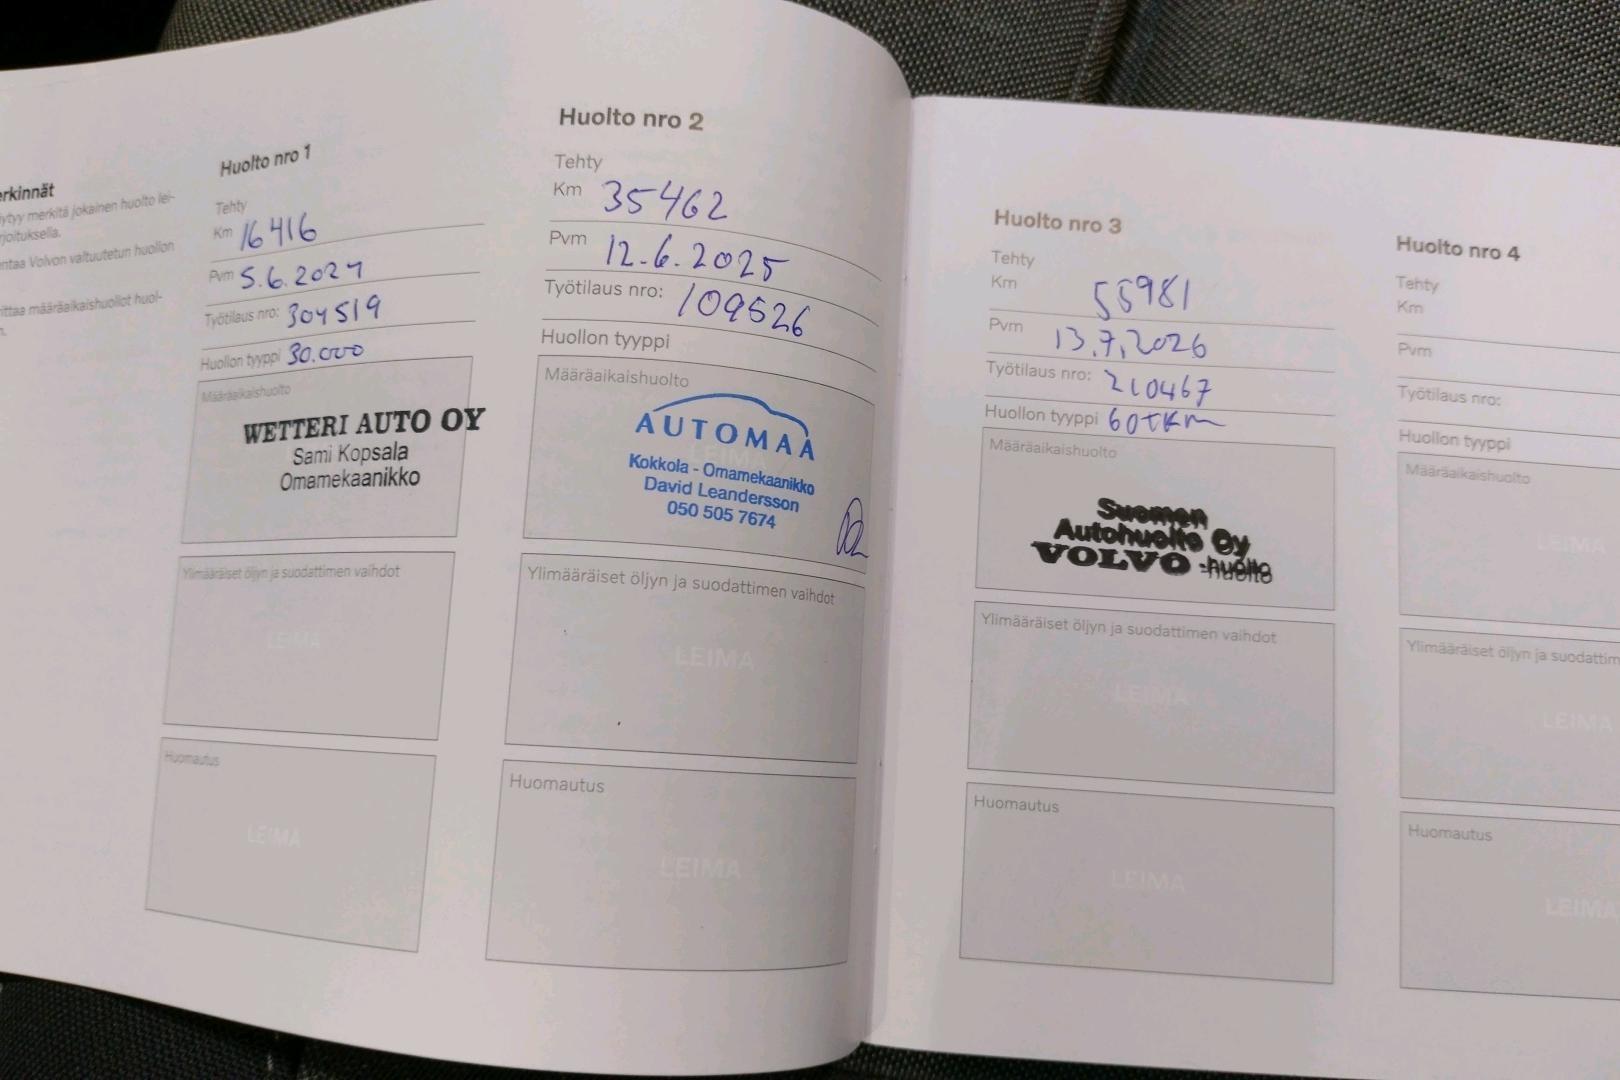 erkinnät
ytyy merkitä jokainen huolto lei-
rjoituksella.
ntaa Volvon valtuutetun huollon
rittaa määräaikaishuollot huol-
n.
Huolto nro 1
Tehty
Km 16416
Pvm 5.6.2024
Työtilaus nro: 304519
Huollon tyyppi 30.000
Määräaikaishuolto
WETTERI AUTO OY
Sami Kopsala
Omamekaanikko
Ylimääräiset öljyn ja suodattimen vaihdot
LEIMA
Huomautus
LEIMA
Huolto nro 2
Tehty
Km 35462
Pvm 12.6.2025
Työtilaus nro: 109526
Huollon tyyppi
Määräaikaishuolto
LEIMA
AUTOMAA
Kokkola - Omamekaanikko
David Leandersson
050 505 7674
Ylimääräiset öljyn ja suodattimen vaihdot
LEIMA
Huomautus
LEIMA
Huolto nro 3
Tehty
Km 55981
Pvm 13.7.2026
Työtilaus nro: 210467
Huollon tyyppi 60tkm
Määräaikaishuolto
Suomen
Autohuolto Oy
VOLVO -huolto
Ylimääräiset öljyn ja suodattimen vaihdot
LEIMA
Huomautus
LEIMA
Huolto nro 4
Tehty
Km
Pvm
Työtilaus nro:
Huollon tyyppi
Määräaikaishuolto
LEIMA
Ylimääräiset öljyn ja suodattim
LEIMA
Huomautus
LEIMA